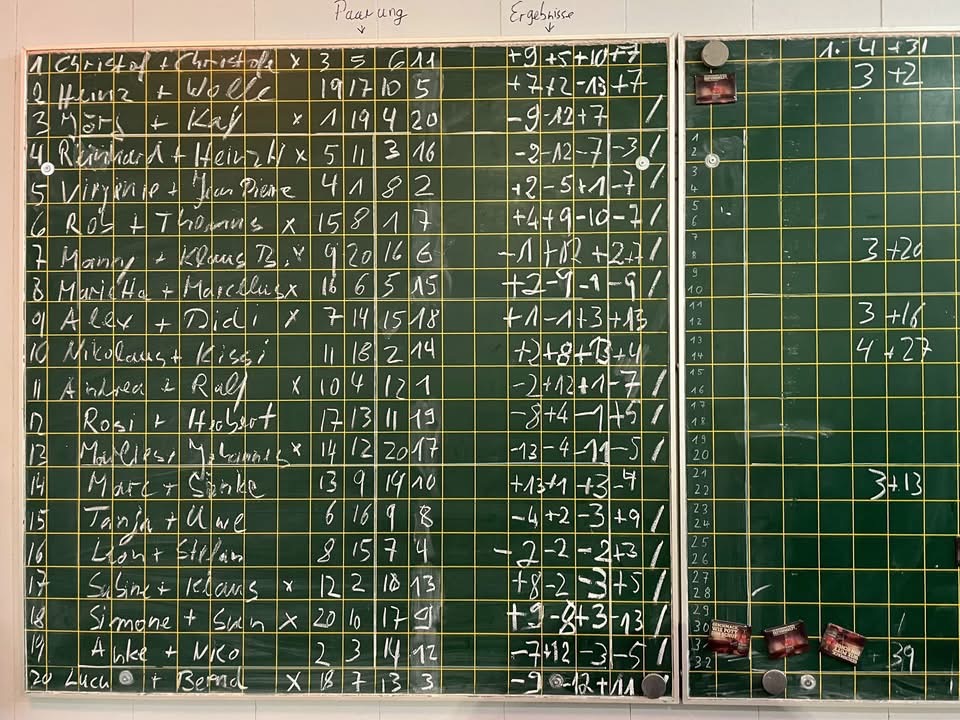 Paarung Ergebnisse
1 Christof + Christofe x 3 5 6 11 +9 +5 +10 +7
2 Heinz + Wolle 19 17 10 5 +7 +2 -13 +7
3 Jörg + Kaj x 1 19 4 20 -9 -12 +7 /
4 Reinhard + Heinzhi x 5 11 3 16 -2 -12 -7 -3 /
5 Virginie + Jean Pierre 4 1 8 2 +2 -5 +1 -7 /
6 Ros + Thomas x 15 8 1 7 +4 +9 -10 -7 /
7 Manny + Klaus B. x 9 20 16 6 -1 +12 +2 +7
8 Marietta + Marcellus x 16 6 5 15 +2 -9 -1 -9 /
9 Alex + Didi x 7 14 15 18 +1 -1 +3 +13
10 Nikolaus + Kissi 11 18 2 14 +2 +8 +13 +4
11 Andrea + Ralf x 10 4 12 1 -2 +12 +1 -7 /
12 Rosi + Herbert 17 13 11 19 -8 +4 -1 +5 /
13 x 14 12 20 17 -13 -4 -11 -5 /
14 Marc + Sönke 13 9 19 10 +13 +1 +3 -4
15 Tanja + Uwe 6 16 9 8 -4 +2 -3 +9 /
16 Leon + Stefan 8 15 7 4 -2 -2 -2 +3 /
17 Sabine + Klaus x 12 2 18 13 +8 -2 -3 +5 /
18 Simone + Sven x 20 10 17 9 +9 -8 +3 -13 /
19 Anke + Nico 2 3 14 12 -7 +12 -3 -5 /
20 Luca + Bernd x 18 7 13 3 -9 -12 +11 /
1. 4 +31
3 +2
3 +20
3 +16
4 +27
3 +13
+39
1
2
3
4
5
6
7
8
9
10
11
12
13
14
15
16
17
18
19
20
21
22
23
24
25
26
27
28
29
30
32